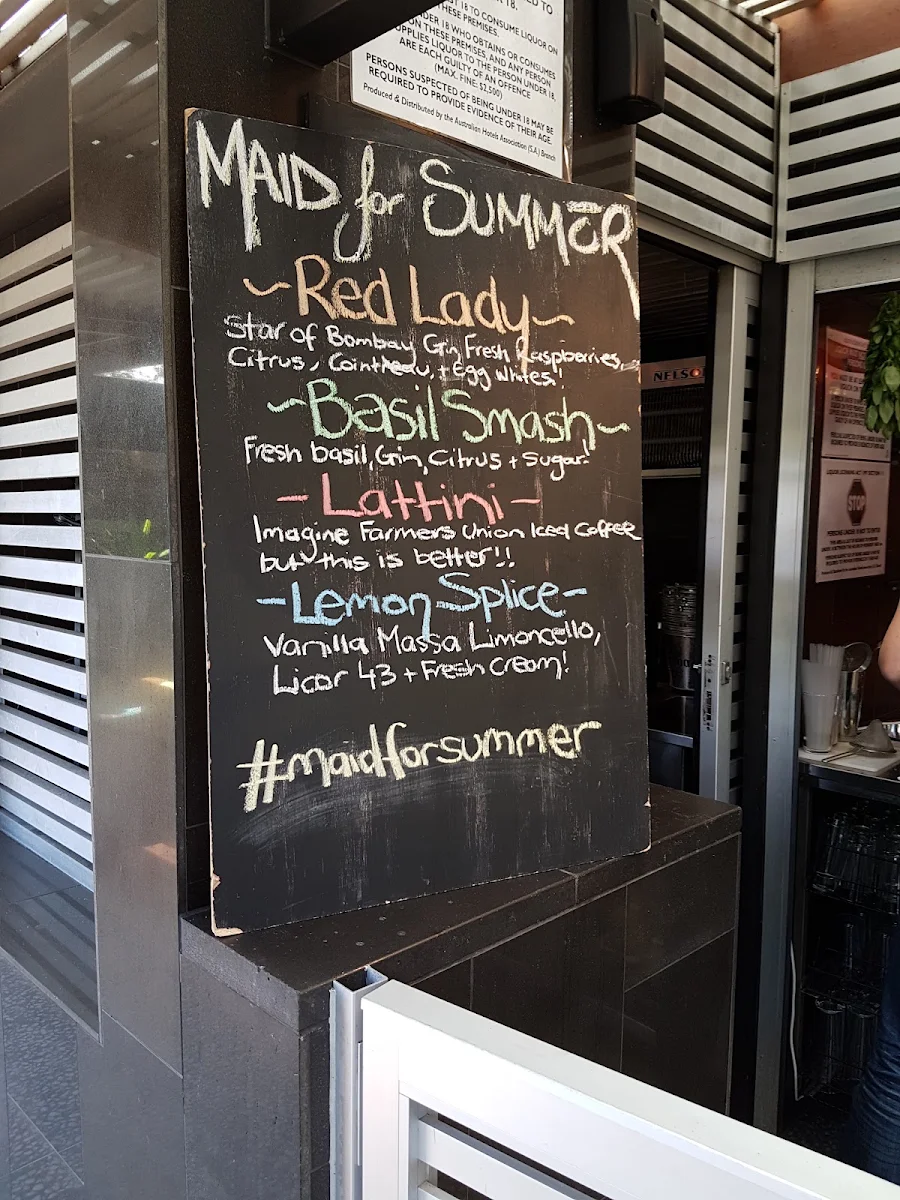 18 TO CONSUME LIQUOR ON
THESE PREMISES.
UNDER 18 WHO OBTAINS OR CONSUMES
ON THESE PREMISES, AND ANY PERSON
SUPPLIES LIQUOR TO THE PERSON UNDER 18,
ARE EACH GUILTY OF AN OFFENCE
(MAX. FINE: $2,500)
PERSONS SUSPECTED OF BEING UNDER 18 MAY BE
REQUIRED TO PROVIDE EVIDENCE OF THEIR AGE.
Produced & Distributed by the Australian Hotels Association (S.A.) Branch
MAID for SUMMER
~Red Lady~
Star of Bombay Gin, Fresh Raspberries,
Citrus, Cointreau, + Egg Whites!
~Basil Smash~
Fresh basil, Gin, Citrus + Sugar!
-Lattini-
Imagine Farmers Union Iced Coffee
but this is better!!
-Lemon Splice-
Vanilla Massa Limoncello,
Licor 43 + Fresh Cream!
#maidforsummer
STOP